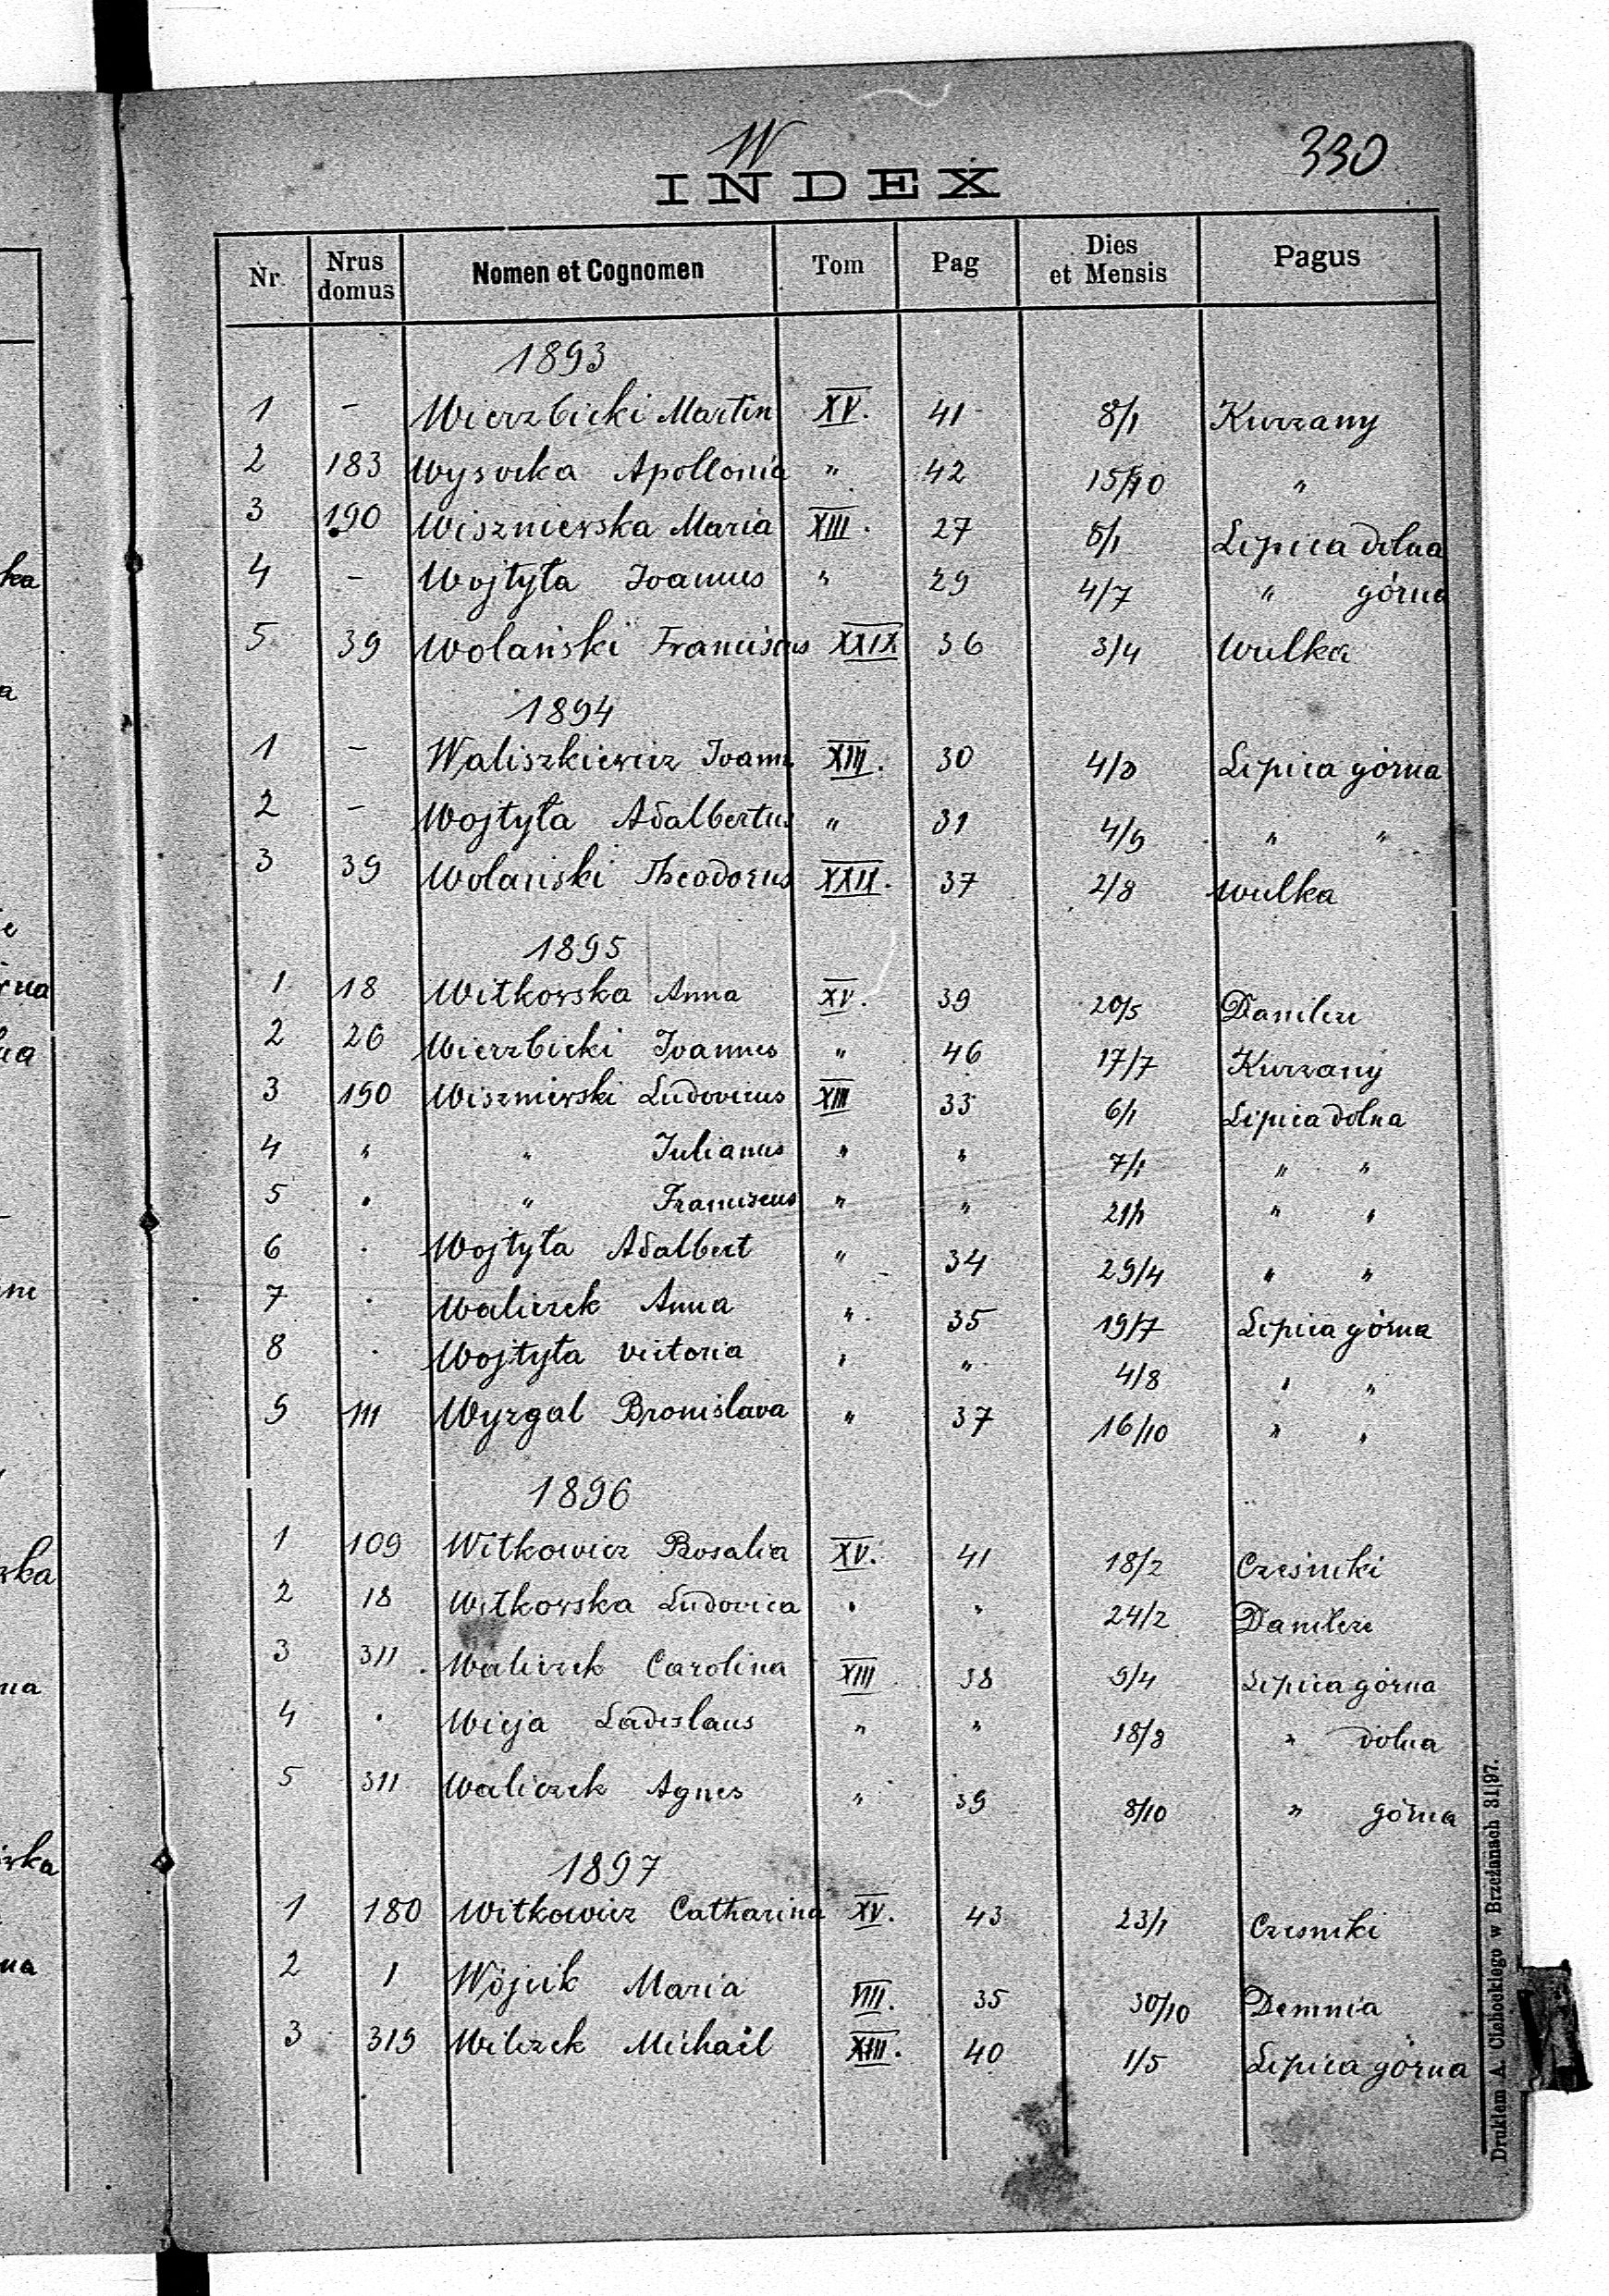 W
330
INDEX
Nr. Nrus domus Nomen et Cognomen Tom Pag Dies et Mensis Pagus
1893
1 – Wierzbicki Martin XV. 41 8/1 Kurzany
2 183 Wysocka Apollonia " 42 15/10 "
3 190 Wiszniewska Maria XIII. 27 6/1 Lipica dolna
4 – Wojtyła Joannes " 29 4/7 " górna
5 39 Wolański Franciscus XXIX 36 3/4 Wulka
1894
1 – Waliszkiewicz Joann XIII. 30 4/8 Lipica górna
2 – Wojtyła Adalbertus " 31 4/9 " "
3 39 Wolański Theodorus XXIX. 37 2/8 Wulka
1895
1 18 Witkowska Anna XV. 39 20/5 Danilcze
2 26 Wierzbicki Joannes " 46 17/7 Kurzany
3 190 Wiszniewski Ludovicus XIII 33 6/1 Lipica dolna
4 " " Julianus " " 7/1 " "
5 " " Franciscus " " 21/1 " "
6 . Wojtyła Adalbert " 34 29/4 " "
7 . Waliczek Anna " 35 19/7 Lipica górna
8 . Wojtyła Victoria " " 4/8 " "
9 111 Wyrgal Bronislava " 37 16/10 " "
1896
1 109 Witkowicz Rosalia XV. 41 18/2 Cześniki
2 18 Witkowska Ludovica " " 24/2 Danilcze
3 311 Waliczek Carolina XIII 38 9/4 Lipica górna
4 . Wieja Ladislaus " " 18/8 " dolna
5 311 Waliczek Agnes " 39 8/10 " górna
1897
1 180 Witkowicz Catharina XV. 43 23/1 Czesniki
2 1 Wójcik Maria VIII. 35 30/10 Demnia
3 319 Wilczek Michail XIII. 40 1/5 Lipica górna
Drukiem A. Cichockiego w Brzeżanach 31|97.